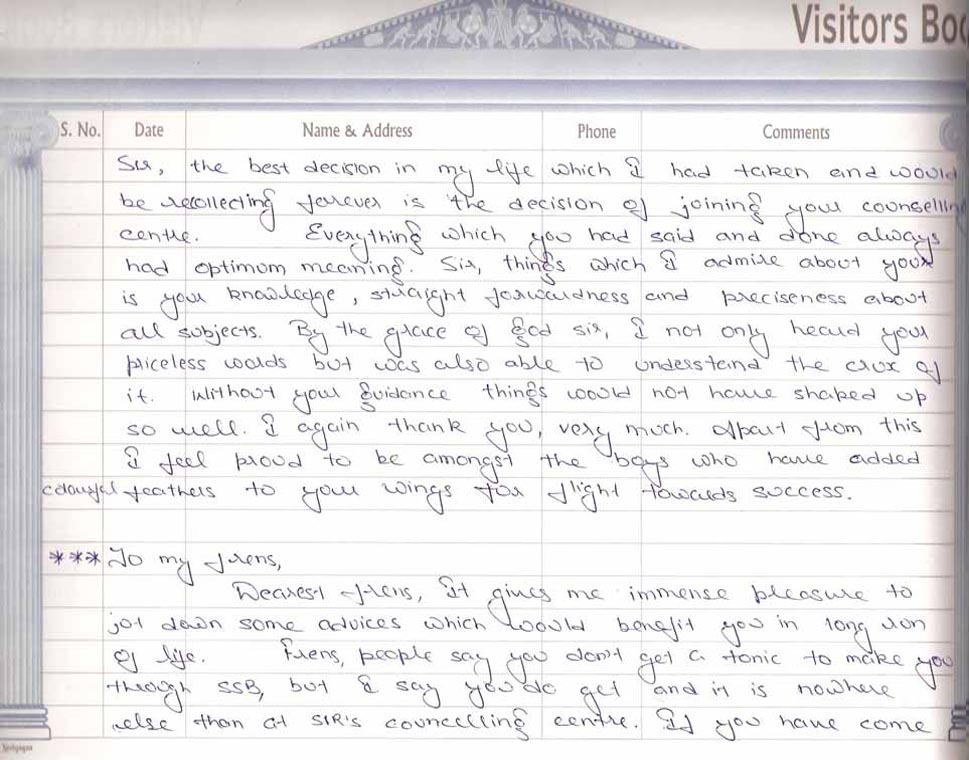 Visitors Boo
S. No. Date Name & Address Phone Comments
Sir, the best decision in my life which I had taken and would
be recollecting forever is the decision of joining your counsellin
centre. Everything which you had said and done always
had optimum meaning. Sir, things which I admire about your
is your knowledge, straight forwardness and preciseness about
all subjects. By the grace of god sir, I not only heard your
priceless words but was also able to understand the crux of
it. Without your guidance things would not have shaped up
so well. I again thank you, very much. Apart from this
I feel proud to be amongst the boys who have added
colourful feathers to your wings for flight towards success.
*** To my frens,
Dearest frens, It gives me immense pleasure to
jot down some advices which would benefit you in long run
of life. Frens, people say you don't get a tonic to make you
through SSB, but I say you do get and it is nowhere
else than at SIR's councelling centre. If you have come